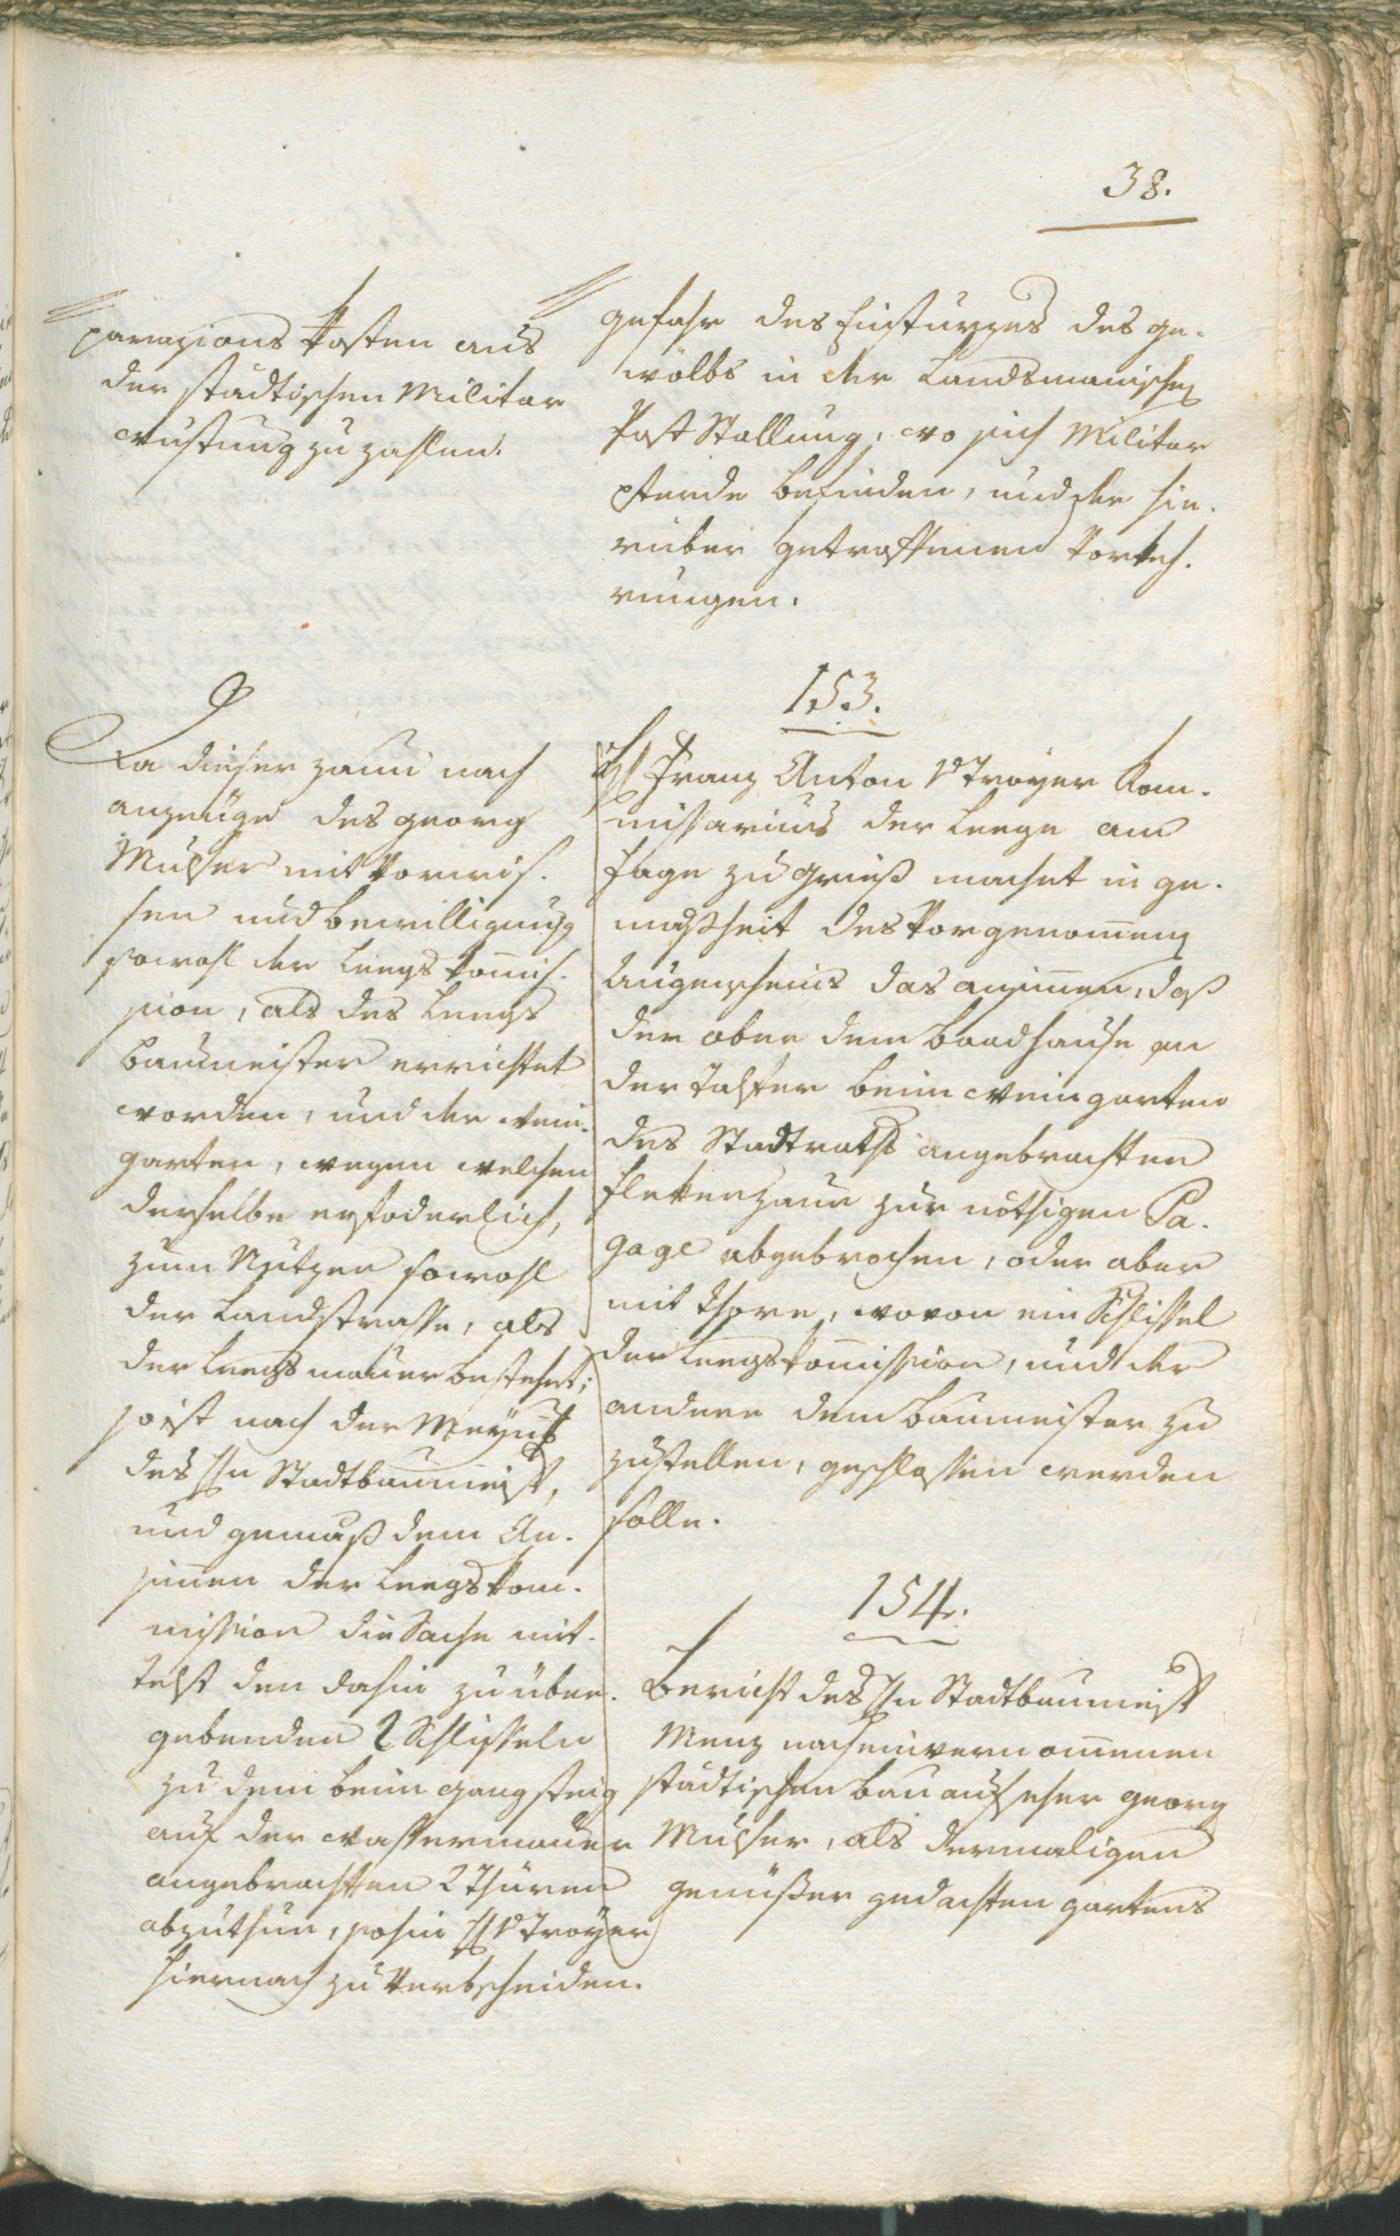 38.
parazions Kosten aus
der städtischen Militar
rustung zu zahlen.
gefahr des Einsturzes des ge-
wölbs in der Landsmanischen
Post Stallung, wo sich Militar
pferde befinden, und der hie-
rüber getroffenen Vorkeh-
rungen.
Da dieser zaun nach
anzeüge des georg
Mulser mit Vorwis-
sen und bewilligung
sowohl der Leegs kommis-
sion, als des Leegs
baumeister errichtet
worden, und der wein-
garten, wegen welchen
derselbe erfoderlich,
zum Nutzen sowohl
der Landstrasse, als
der Leegs mauer bestehet;
so ist nach der Meynung
des Hn Stadtbaumeist,
und gemäß dem An-
sinnen der Leegs kom-
mission die Sache mit-
telst den dahin zu über-
gebenden 2 Schlisseln
zu dem beim gangsteig
auf der wassermauer
angebrachten 2 Thüren
abzuthun, sohin H v Troyer
hiernach zu Verbscheiden.
153.
H Franz Anton v Troyer Kom-
missarius der Leege am
Fage zu Grieß machet in ge-
mäßheit des Vorgenommenen
Augenscheins das ansinnen, daß
der ober dem Baadhause an
der Talfer beim weingarten
des Stadtraths angebrachten
Fleckenzaun zur nöthigen Pa-
gage abgebrochen, oder aber
mit Thore, wovon ein Schlissel
der Leegs kommission, und der
andere dem baumeister zu
zustellen, geschlossen werden
solle.
154.
Bericht des Hn Stadtbaumeist
Menz nach einvernommenen
städtischen bau aufseher georg
Mulser, als dermaligen
genüßer gedachten gartens